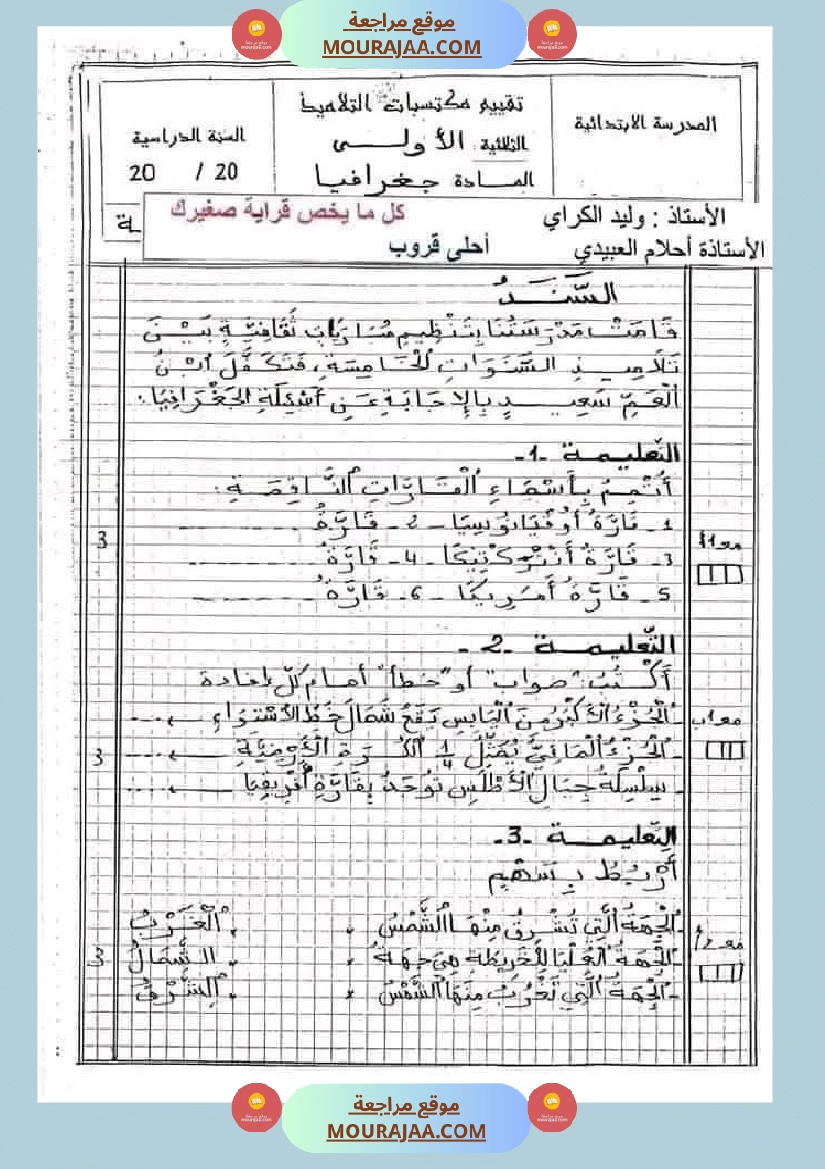 موقع مراجعة
MOURAJAA.COM
المدرسة الابتدائية
تقييم مكتسبات التلاميذ
الثلاثية الأولى
المادة جغرافيا
السنة الدراسية
20 / 20
الأستاذ : وليد الكراي
كل ما يخص قراية صغيرك
الأستاذة أحلام العبيدي
أحلى قروب
ـة
السَّنَدُ
قَامَتْ مَدْرَسَتُنَا بِتَنْظِيمِ مُبَارَيَاتٍ ثَقَافِيَّةٍ بَيْنَ
تَلَامِيذِ السَّنَوَاتِ الْخَامِسَةِ، فَتَكَفَّلَ ابْنُ
الْعَمِّ سَعِيدٍ بِالإِجَابَةِ عَنِ أَسْئِلَةِ الجُغْرَافِيَا:
التعليمة -1-
أُتَمِّمُ بِأَسْمَاءِ الْقَارَّاتِ النَّاقِصَةِ:
1- قَارَّةُ أُوقْيَانُوسِيَا - 2- قَارَّةُ ............
3- قَارَّةُ أَنْتَرْكْتِيكَا - 4- قَارَّةُ ............
5- قَارَّةُ أَمَرِيكَا - 6- قَارَّةُ ............
مع1أ
3
التّعليمة -2-
أَكْتُبُ "صواب" أو "خطأ" أمام كلّ إفادة
- الْجُزْءُ الأَكْبَرُ مِنَ الْيَابِسِ يَقَعُ شَمَالَ خَطِّ الاسْتِوَاءِ ......
- الْجُزْءُ الْمَائِيُّ يُمَثِّلُ 1/4 الْكُرَةِ الأَرْضِيَّةِ ......
- سِلْسِلَةُ جِبَالِ الأَطْلَسِ تُوجَدُ بِقَارَّةِ أَفْرِيقِيَا ......
مع1ب
3
التعليمة -3-
أَرْبُطُ بِسَهْمٍ
- الْجِهَةُ الَّتِي تُشْرِقُ مِنْهَا الشَّمْسُ • • الْغَرْبُ
- الْجِهَةُ الْعُلْيَا لِلْخَرِيطَةِ هِيَ جِهَةُ • • الشَّمَالُ
- الْجِهَةُ الَّتِي تَغْرُبُ مِنْهَا الشَّمْسُ • • الشَّرْقُ
مع2أ
3
موقع مراجعة
MOURAJAA.COM